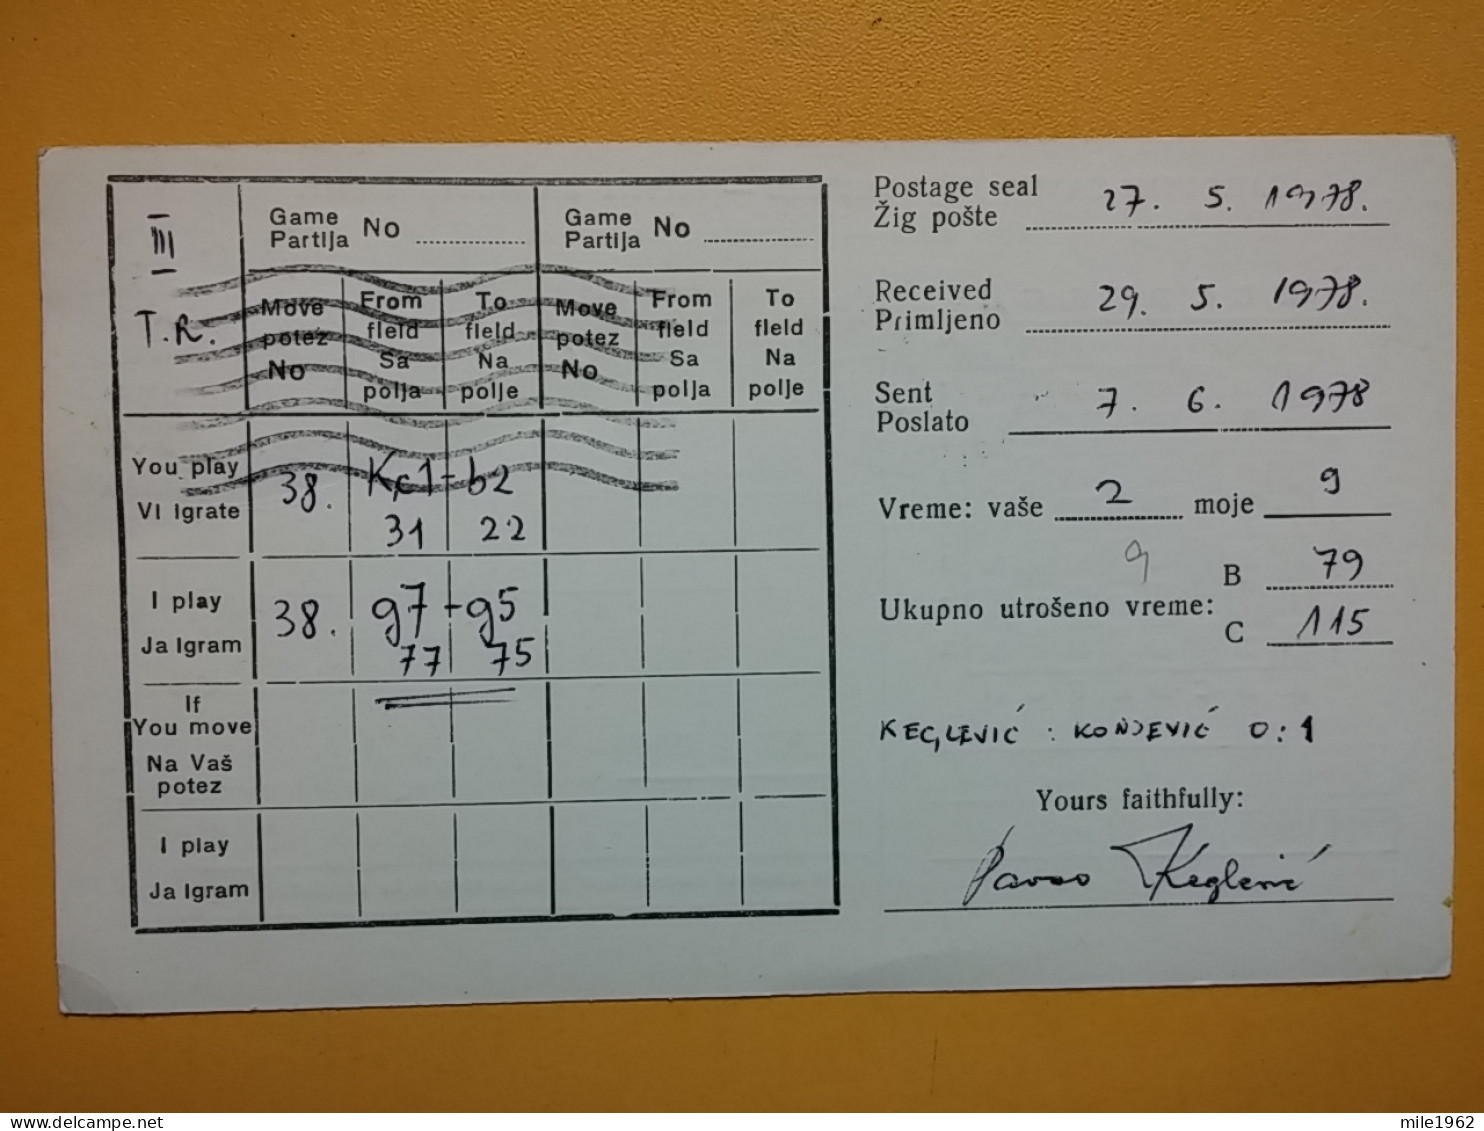 III
T.R.
Game
Partija No
Game
Partija No
Move
potez
No
From
field
Sa
polja
To
field
Na
polje
Move
potez
No
From
field
Sa
polja
To
field
Na
polje
You play
Vi Igrate
38. Kc1 - b2
31 22
I play
Ja Igram
38. g7 - g5
77 75
If
You move
Na Vaš
potez
I play
Ja Igram
Postage seal
Žig pošte 27. 5. 1978.
Received
Primljeno 29. 5. 1978.
Sent
Poslato 7. 6. 1978
Vreme: vaše 2 moje 9
9
Ukupno utrošeno vreme:
B 79
C 115
KEGLEVIĆ : KONJEVIĆ 0:1
Yours faithfully:
Pavao Keglević
mile1962